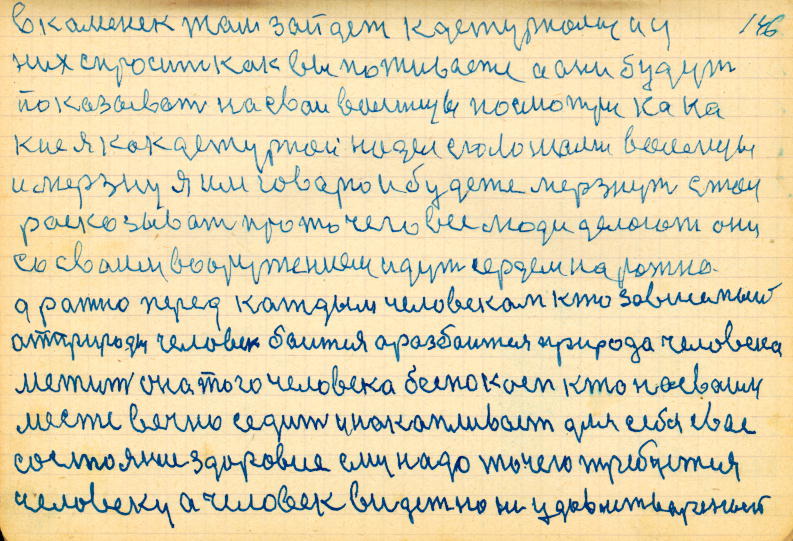 в каменек там зайдет к детурному и у 146
них спросит как вы поживаете а они будут
показыват на сваи валинцы посмотри ка ка
кие я как детурной надел с галошами валенцы
и мерзну я им говарю и будете мерзнут стои
расказыват про то чего все люди делоют они
со сваим вооружением идут сердем на рожно
а ратно перед каждым человекам кто зависемый
атприроды человек баится а раз баится природа человека
метит она того человека беспокоет кто на сваим
месте вечно седит и накапливает для себя свае
состояние здоровие ему надо то чего требуется
человеку а человек видет но ни удавлетвареный